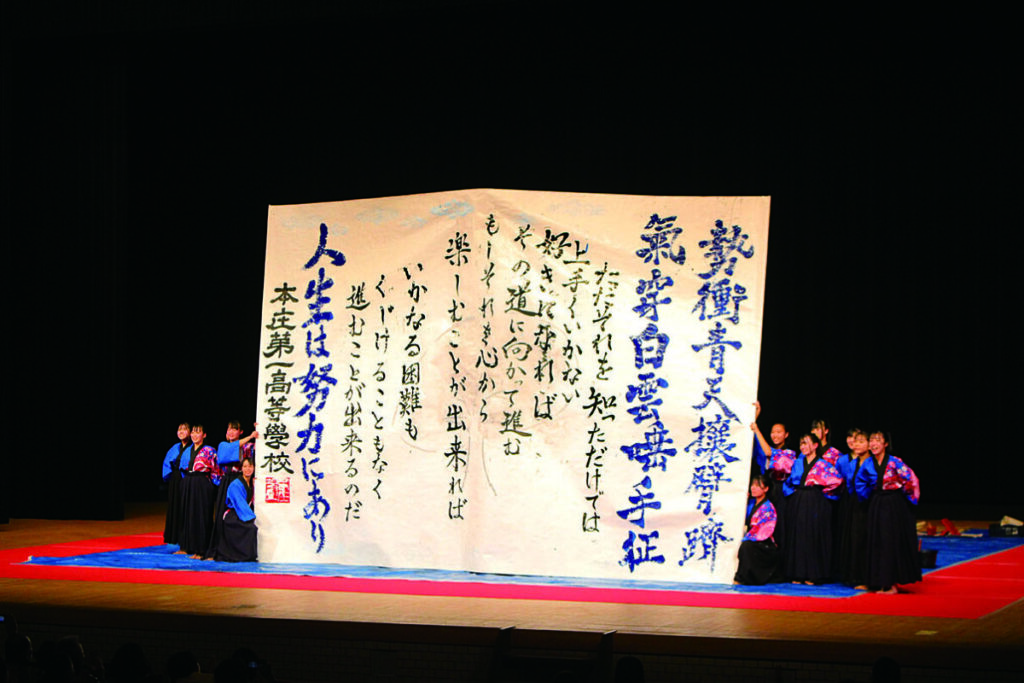 勢衝青天攘臂躋
氣穿白雲唾手征
ただそれを知っただけでは
上手くいかない
好きになれば
その道に向かって進む
もしそれを心から
楽しむことが出来れば
いかなる困難も
くじけることもなく
進むことが出来るのだ
人生は努力にあり
本庄第一高等學校